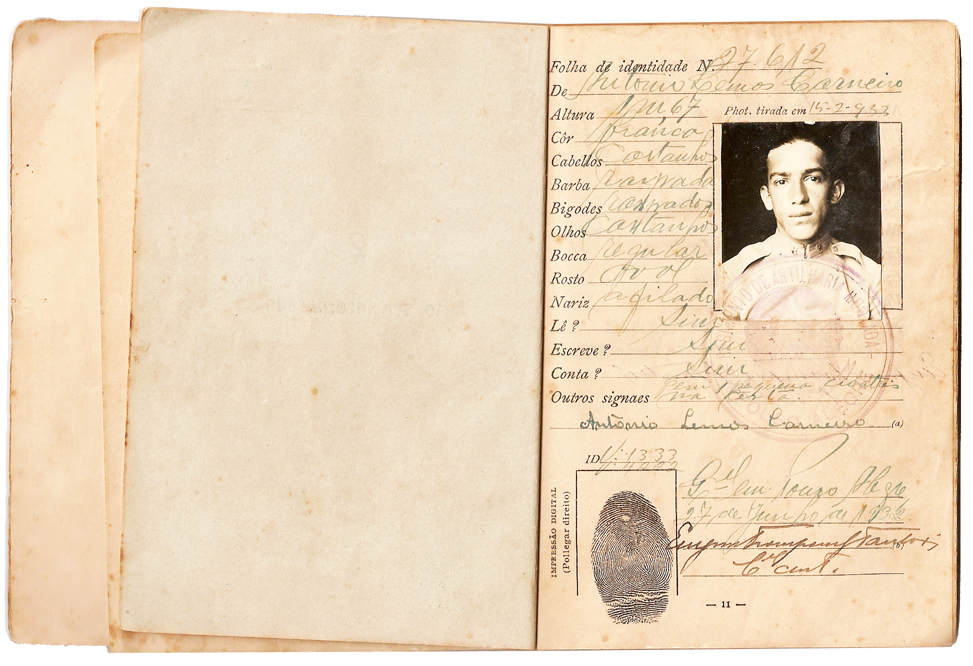 Folha de identidade N. 27.612
De Antonio Lemos Carneiro
Altura 1m67
Phot. tirada em 15-2-933
Côr branca
Cabellos Castanhos
Barba raspada
Bigodes raspados
Olhos Castanhos
Bocca regular
Rosto Oval
Nariz afilado
Lê? Sim
Escreve? Sim
Conta? Sim
Outros signaes Tem 1 pequena cicatriz
na testa.
Antônio Lemos Carneiro (a)
ID V: 1333
Gel em Pouso Alegre
27 de Junho de 1933
(b)
IMPRESSÃO DIGITAL
(Pollegar direito)
— 11 —